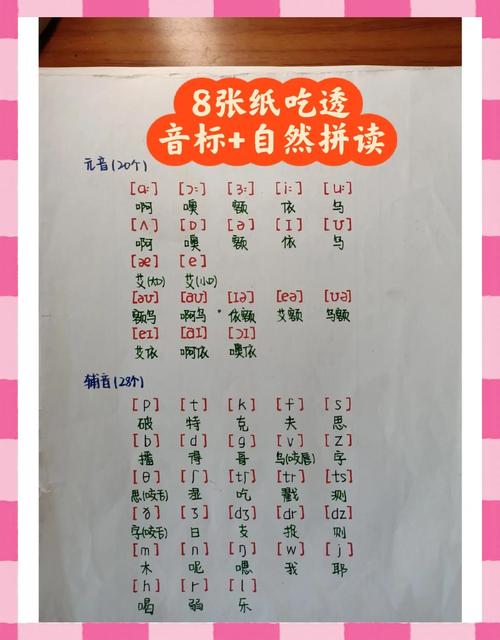 8张纸吃透
音标+自然拼读
元音(20个)
[ɑ:] [ɔ:] [ɜ:] [i:] [u:]
啊 噢 额 依 乌
[ʌ] [ɒ] [ə] [ɪ] [ʊ]
啊 噢 额 依 乌
[æ] [e]
艾(大口) 艾(小口)
[əʊ] [aʊ] [ɪə] [eə] [ʊə]
额乌 啊乌 依额 艾额 乌额
[eɪ] [aɪ] [ɔɪ]
艾依 啊依 噢依
辅音(28个)
[p] [t] [k] [f] [s]
破 特 克 夫 思
[b] [d] [g] [v] [z]
播 得 哥 乌(咬唇) 字
[θ] [ʃ] [tʃ] [tr] [ts]
思(咬舌) 湿 吃 戳 测
[ð] [ʒ] [dʒ] [dr] [dz]
字(咬舌) 日 支 捉 则
[m] [n] [ŋ] [w] [j]
木 呢 嗯 我 耶
[h] [r] [l]
喝 弱 乐